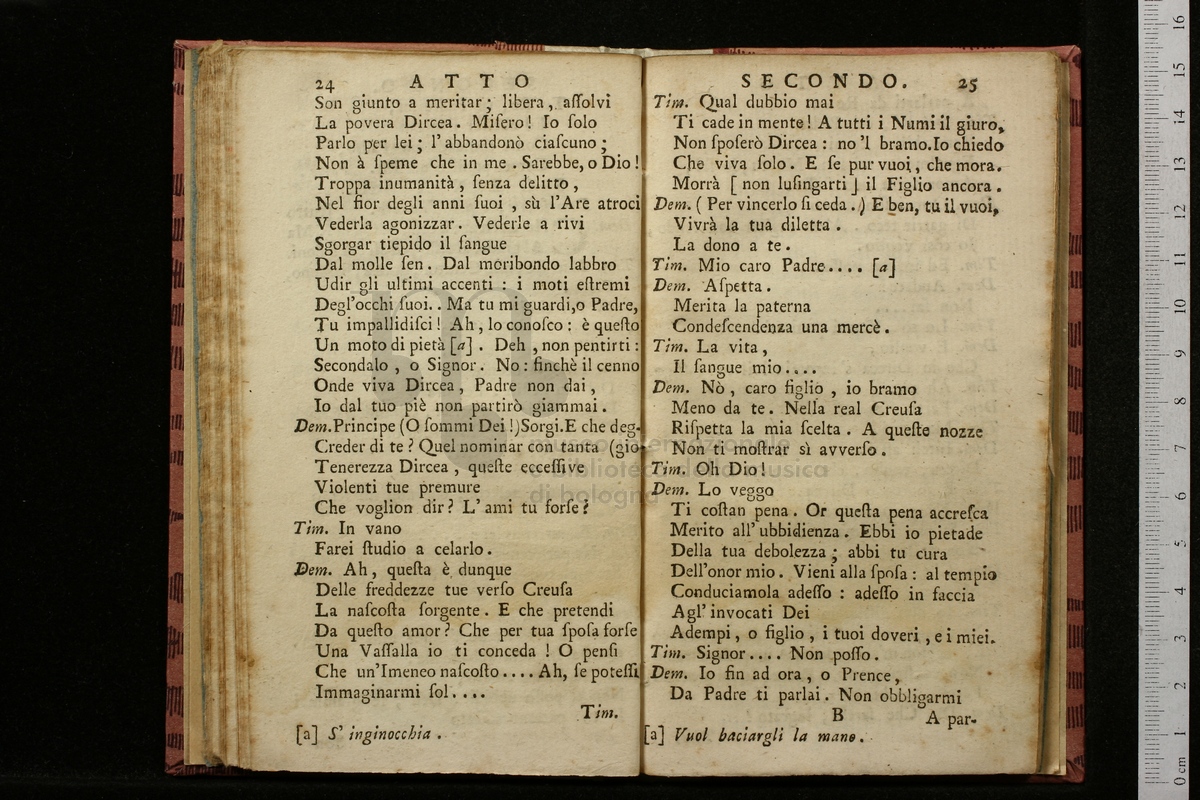 24 ATTO
Son giunto a meritar; libera, aſſolvi
La povera Dircea. Miſero! Io ſolo
Parlo per lei; l'abbandonò ciaſcuno;
Non à ſpeme che in me. Sarebbe, o Dio!
Troppa inumanità, ſenza delitto,
Nel fior degli anni ſuoi, sù l'Are atroci
Vederla agonizzar. Vederle a rivi
Sgorgar tiepido il ſangue
Dal molle ſen. Dal moribondo labbro
Udir gli ultimi accenti: i moti eſtremi
Degl'occhi ſuoi.. Ma tu mi guardi, o Padre,
Tu impallidiſci! Ah, lo conoſco: è queſto
Un moto di pietà [a]. Deh, non pentirti:
Secondalo, o Signor. No: finchè il cenno
Onde viva Dircea, Padre non dai,
Io dal tuo piè non partirò giammai.
Dem. Principe (O ſommi Dei!) Sorgi. E che deg-
Creder di te? Quel nominar con tanta (gio
Tenerezza Dircea, queſte ecceſſive
Violenti tue premure
Che voglion dir? L'ami tu forſe?
Tim. In vano
Farei ſtudio a celarlo.
Dem. Ah, queſta è dunque
Delle freddezze tue verſo Creuſa
La naſcoſta ſorgente. E che pretendi
Da queſto amor? Che per tua ſpoſa forſe
Una Vaſſalla io ti conceda! O penſi
Che un'Imeneo naſcoſto.... Ah, ſe poteſſi
Immaginarmi ſol....
Tim.
[a] S' inginocchia.
SECONDO. 25
Tim. Qual dubbio mai
Ti cade in mente! A tutti i Numi il giuro,
Non ſpoſerò Dircea: no 'l bramo. Io chiedo
Che viva ſolo. E ſe pur vuoi, che mora.
Morrà [ non luſingarti ] il Figlio ancora.
Dem. ( Per vincerlo ſi ceda.) E ben, tu il vuoi,
Vivrà la tua diletta.
La dono a te.
Tim. Mio caro Padre.... [a]
Dem. Aſpetta.
Merita la paterna
Condeſcendenza una mercè.
Tim. La vita,
Il ſangue mio....
Dem. Nò, caro figlio, io bramo
Meno da te. Nella real Creuſa
Riſpetta la mia ſcelta. A queſte nozze
Non ti moſtrar sì avverſo.
Tim. Oh Dio!
Dem. Lo veggo
Ti coſtan pena. Or queſta pena accreſca
Merito all' ubbidienza. Ebbi io pietade
Della tua debolezza; abbi tu cura
Dell'onor mio. Vieni alla ſpoſa: al tempio
Conduciamola adeſſo: adeſſo in faccia
Agl' invocati Dei
Adempi, o figlio, i tuoi doveri, e i miei.
Tim. Signor.... Non poſſo.
Dem. Io fin ad ora, o Prence,
Da Padre ti parlai. Non obbligarmi
B A par-
[a] Vuol baciargli la mano.
museo internazionale
e biblioteca della musica
di bologna
0 cm 1 2 3 4 5 6 7 8 9 10 11 12 13 14 15 16